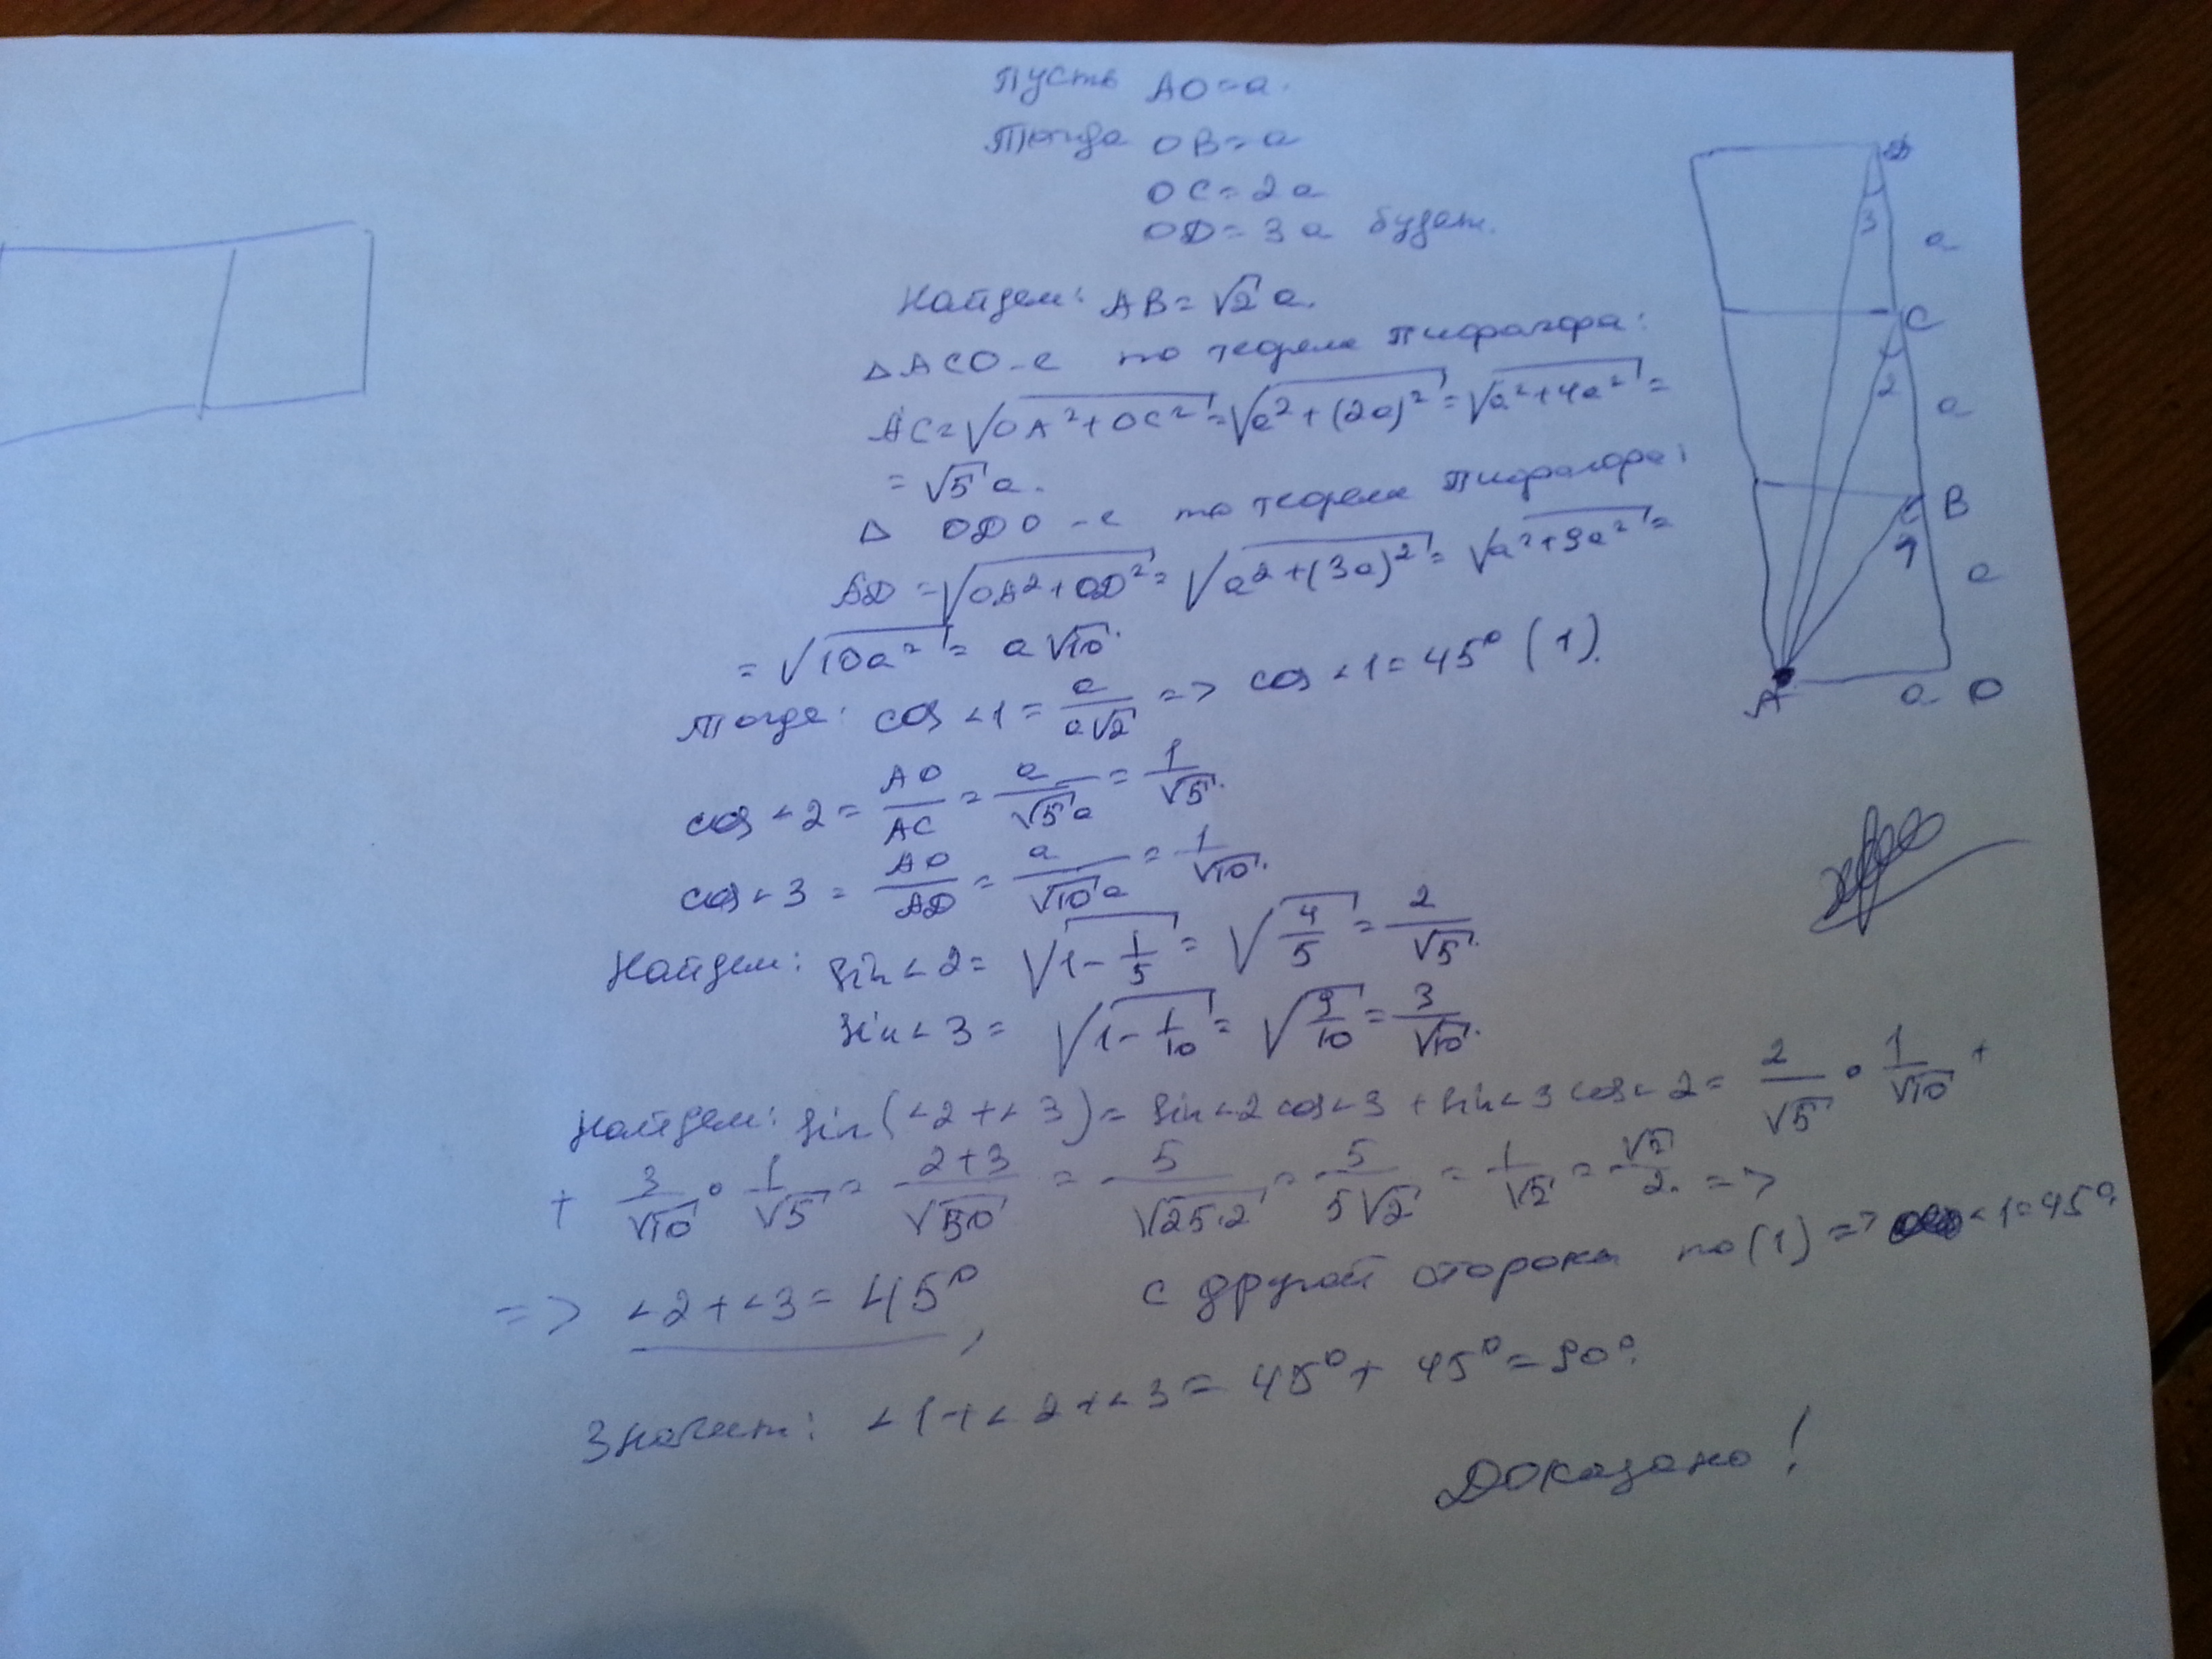 Пусть AO=a.
Тогда OB=a
OC=2a
OD=3a будет.
Найдем: AB=√2 a.
△ACO-с по теореме Пифагора:
AC=√(OA²+OC²)=√(a²+(2a)²)=√(a²+4a²)=
=√5 a.
△ ODO-с по теореме Пифагора:
AD=√(OA²+OD²)=√(a²+(3a)²)=√(a²+9a²)=
=√(10a²)=a√10.
Тогда: cos∠1=a/(a√2)=> cos∠1=45° (1).
cos∠2=AO/AC=a/(√5 a)=1/√5.
cos∠3=AO/AD=a/(√10 a)=1/√10.
Найдем: sin∠2=√(1-1/5)=√(4/5)=2/√5.
sin∠3=√(1-1/10)=√(9/10)=3/√10.
Найдем: sin(∠2+∠3)=sin∠2cos∠3+sin∠3cos∠2=2/√5·1/√10+
+3/√10·1/√5=(2+3)/√50=5/√(25·2)=5/(5√2)=1/√2=√2/2.=>
=> ∠2+∠3=45°, с другой стороны по (1)=> ∠1=45°.
Значит: ∠1+∠2+∠3=45°+45°=90°.
Доказано!
D
3
a
C
2
a
B
1
a
A
a
O